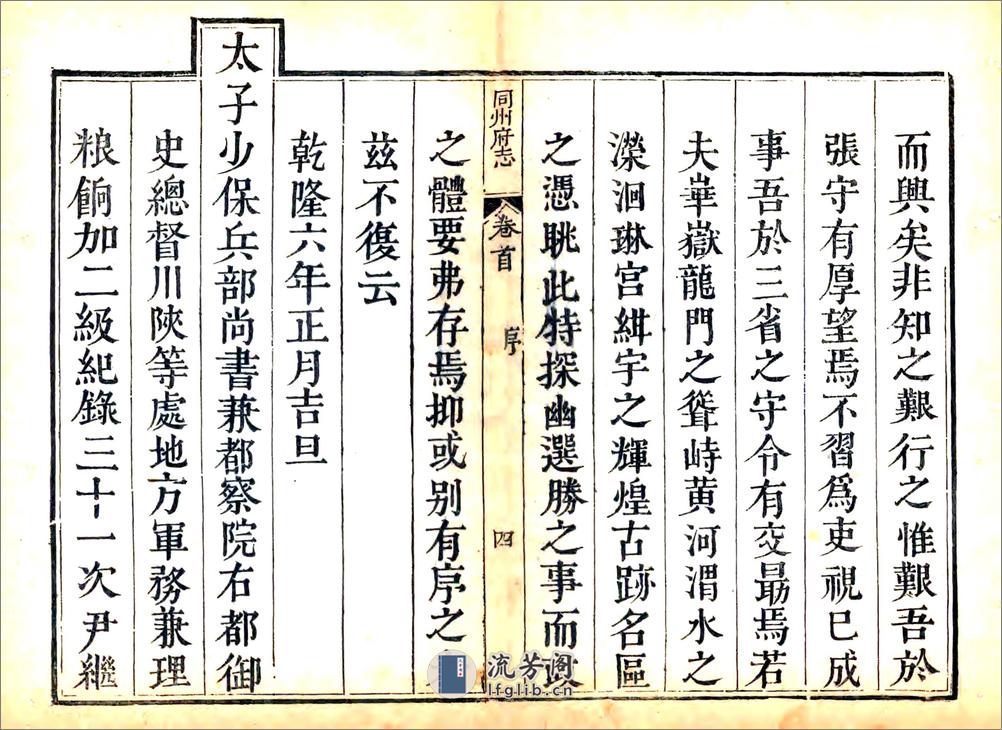 而興矣非知之艱行之惟艱吾於
張守有厚望焉不習爲吏視已成
事吾於三省之守令有交最焉若
夫崋嶽龍門之聳峙黄河渭水之
濚洄琳宫紺宇之輝煌古跡名區
之憑眺此特探幽選勝之事而政
同州府志
卷首
序
四
之體要弗存焉抑或别有序之
兹不復云
乾隆六年正月吉旦
太子少保兵部尚書兼都察院右都御
史總督川陝等處地方軍務兼理
粮餉加二級紀錄三十一次尹繼
流芳阁
lfglib.cn